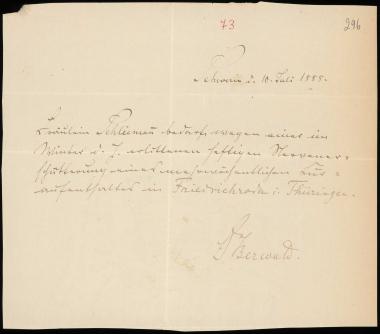 73
296
Schwerin d. 10. Juli 1885.
Fräulein Schliemann bedarf wegen einer im
Winter d. J. erlittenen heftigen Nervener-
schütterung eines mehrwöchentlichen Kur-
aufenthaltes in Friedrichroda i. Thüringen.
Dr Berwald.